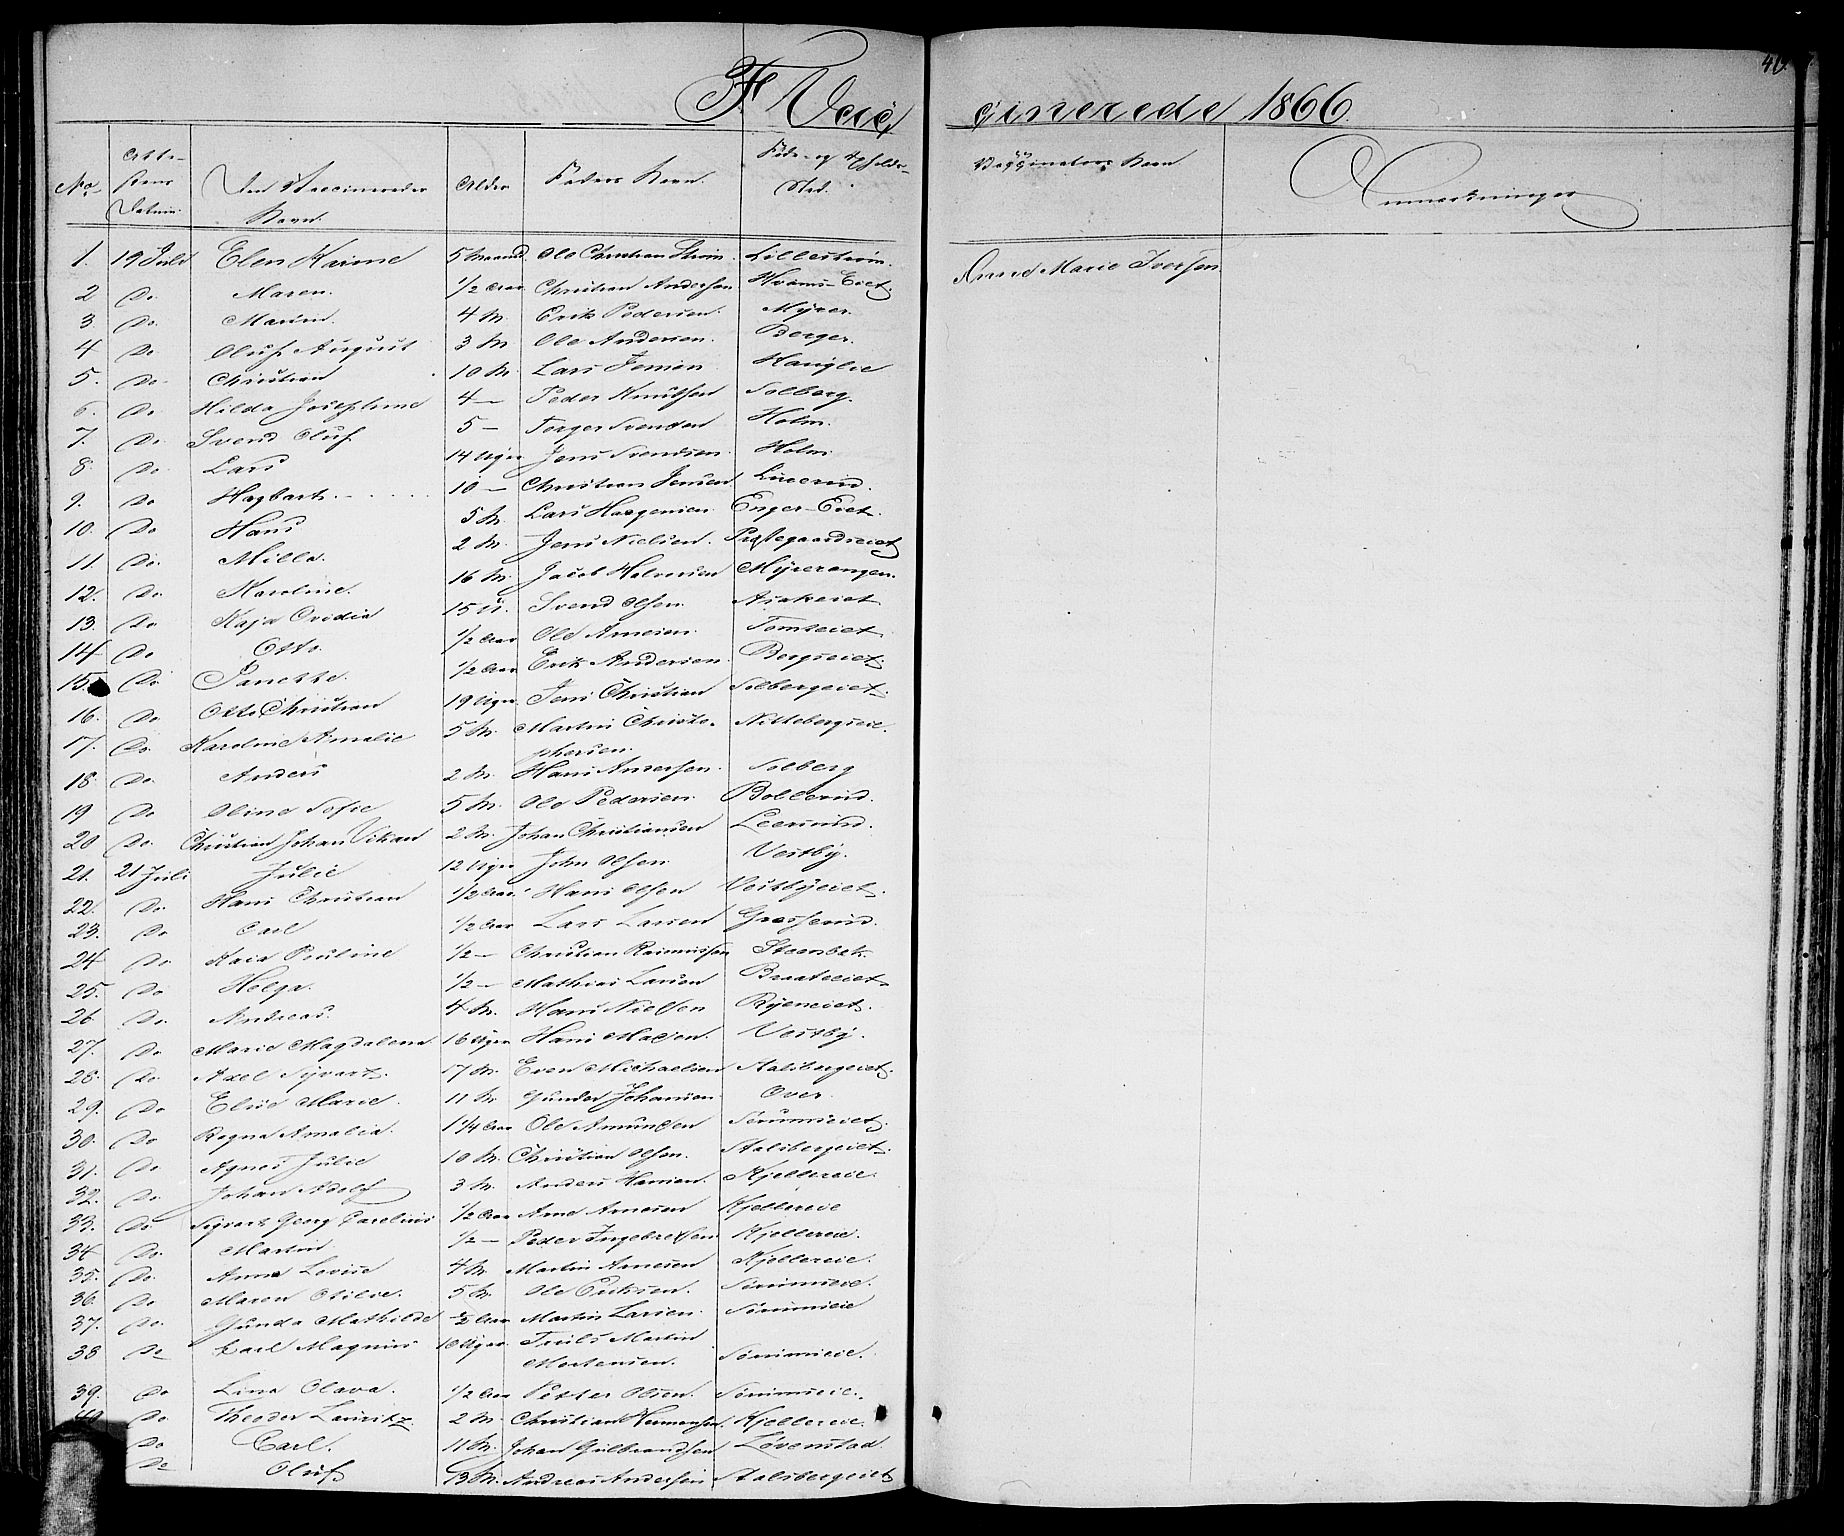 F Vacc
cinerede 1866.
No Attestens Datum. Den Vaccineredes Navn. Alder Faders Navn. Føde- og Opholds-Sted. Vaccinators Navn Anmærkninger
1. 19 Juli Elen Karine 5 Maaned Ole Christian Strøm. Lillestrøm. Anne Marie Iversen.
2 Do Maren. 1/2 Aar Christian Andersen Hvams-Eiet.
3. Do Maren. 4 M. Erik Pedersen. Myrer.
4 Do Oluf August 3 M Ole Andersen. Berger.
5. Do Christian 10 M. Lars Jensen
6. Do Hilda Josephine 4 — Peder Knutsen Solberg.
7. Do Svend Oluf 5 — Torger Svendsen Holm.
8. Do Lars 14 Uger Jens Svendsen. Holm
9. Do Hagbart 10 — Christian Jensen
10. Do Hans 5 M. Lars Haagensen Enger-Eiet.
11. Do. Milla. 2 M. Jens Nielsen. Præstegaardseiet
12. Do Karoline. 16 M. Jacob Halvorsen Myrerangen.
13. Do Kaja Ovidia 15 U. Svend Olsen. Asakeiet
14 Do Otto. 1/2 Aar Ole Arnesen. Tomteiet
15. Do Janette. 1/2 Aar Erik Andersen Bergseiet.
16. Do Otto Christian 19 Uger Jens Christian Solbergeiet.
17. Do. Karoline Amalie 5 M. Martin Christo- Nittebergseie.
phersen.
18. Do Anders 2 M. Hans Andersen. Solberg
19 Do Oline Sofie 5 M. Ole Pedersen. Bollerud.
20 Do. Christian Johan 2 M. Johan Christiansen Leerund.
21. 21 Juli Julie 12 Uger John Olsen Vestby.
22. Do. Hans Christian 1/2 Aar. Hans Olsen Vestbyeiet.
23. Do Carl 1/2 Aar Lars Larsen
24 Do. Kaia Pauline 1/2 — Christian Rasmussen Steenbek.
25. Do Helga. 1/2 — Mathias Larsen Braateeiet.
26 Do. Andreas. 4 M. Hans Nielsen Ryeneiet.
27. Do Marie Magdalena 16 Uger Hans Madsen. Vestby.
28. Do Axel Syvart. 17 M. Even Michaelsen Aalsbergeiet.
29. Do Elise Marie. 11 M Gunder Johansen Over.
30. Do Ragna Amalia. 1 1/4 Aar Ole Amundsen Sørumseiet.
31. Do Agnes Julie 10 M. Christian Olsen. Aalsbergeiet.
32. Do Johan Adolf 3 M. Anders Hansen. Kjellereie.
33. Do Sigvart Georg Carelius 1/2 Aar Arne Arnesen Kjellereie
34 Do. Martin 1/2 — Peder Ingebretsen Kjellereie.
35. Do. Anna Lovise 4 M. Martin Arnesen Kjellereie.
36. Do Maren Otilie. 5 M. Ole Eriksen. Sørumseie.
37. Do. Gunda Mathilde 1/2 Aar Martin Larsen. Sørumseie
38 Do Karl Magnus Uger Truls Martin
Mortensen. Sørumseie.
39. Do Lina Olava. 1/2 Aar Petter Olsen. Sørumseie.
40 Do Theodor Lauritz 2 M. Christian Hermansen. Kjellereie.
Do Carl. 11 M. Johan Gulbrandsen Løvenstad
Do Oluf 13 M. Andreas Andersen Aalsbergeiet